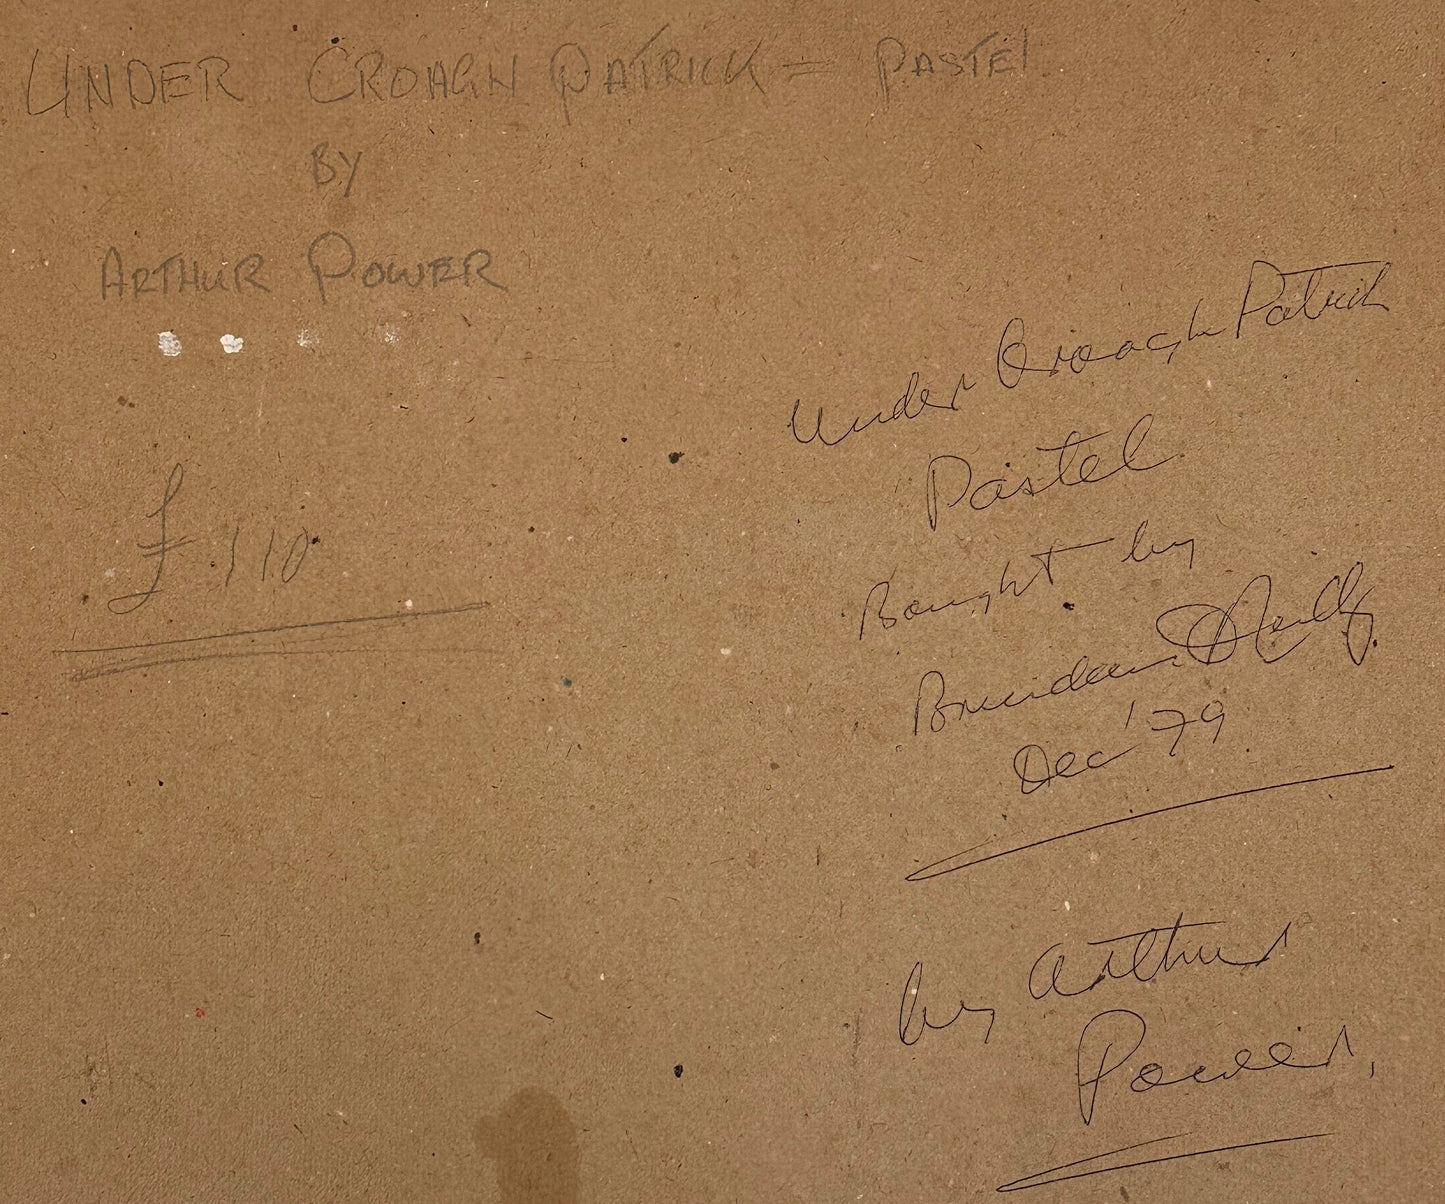 UNDER CROAGH PATRICK = PASTEL
BY
ARTHUR POWER
£110
Under Croagh Patrick
Pastel
Bought by
Brendan O'Reilly
Dec '79
by Arthur
Power,